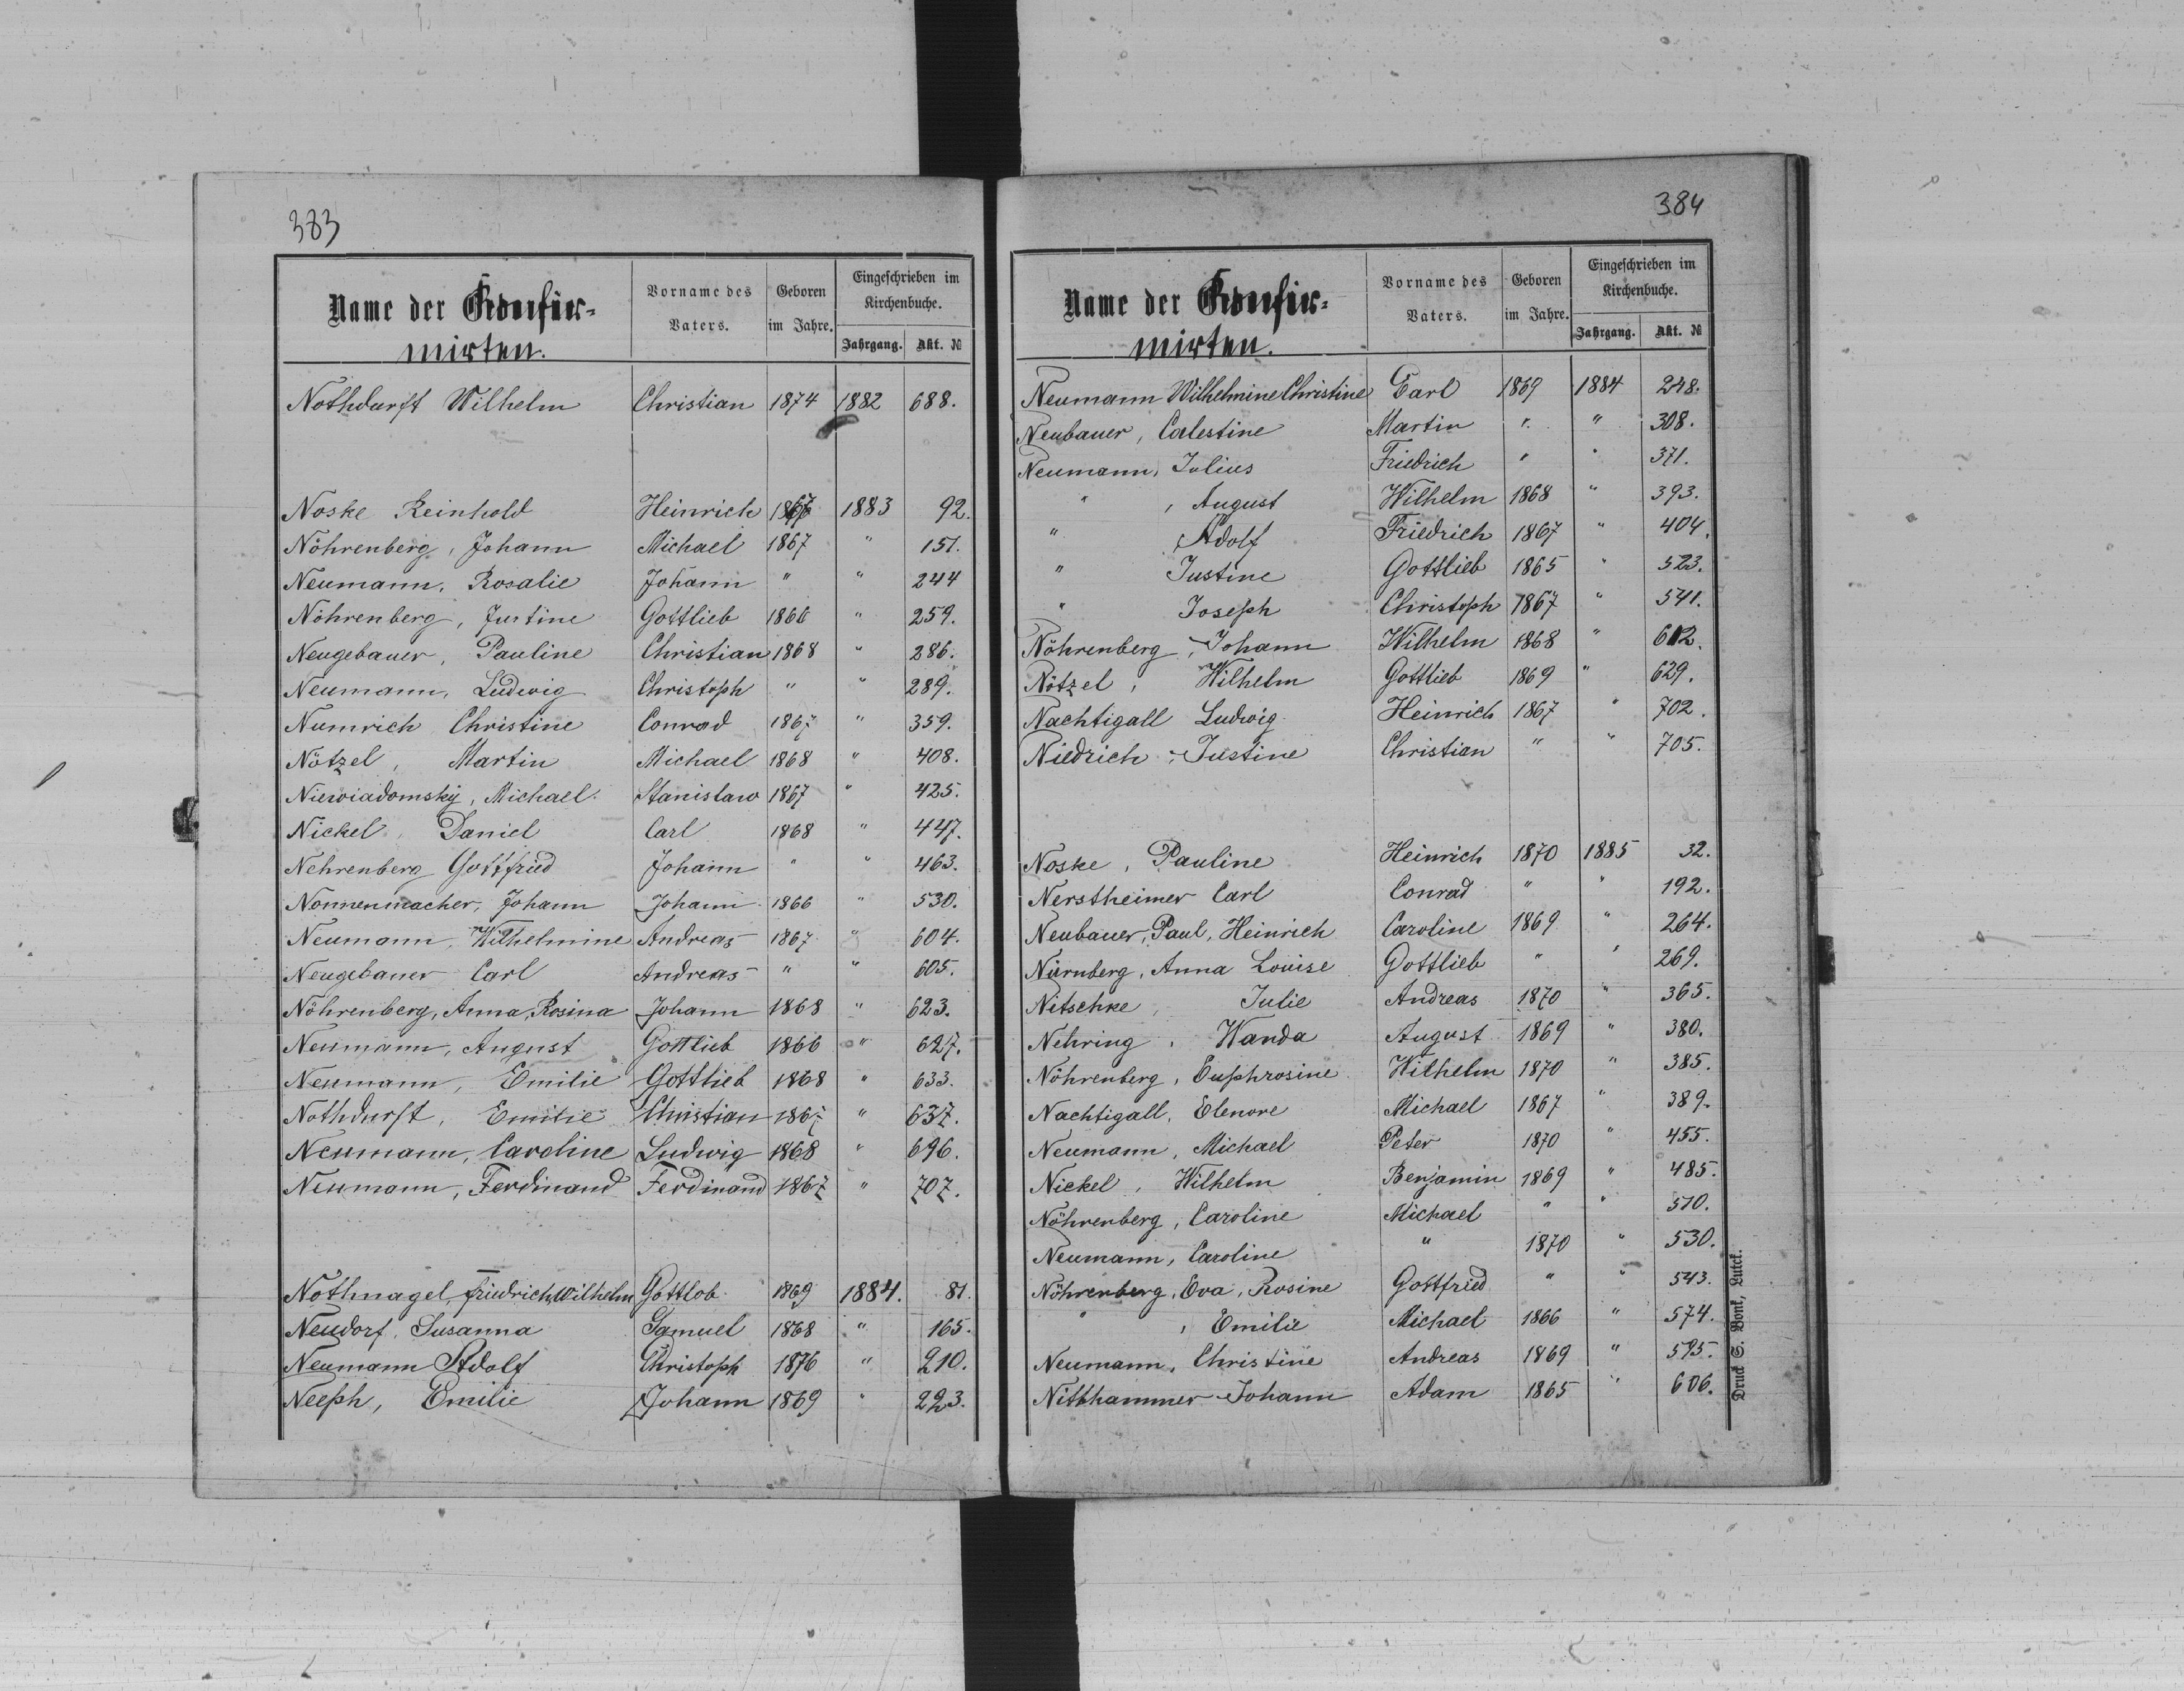 383
Name der Konfir-
mirten.
Vorname des Vaters.
Geboren im Jahre.
Eingeschrieben im Kirchenbuche.
Jahrgang. Akt. №
Nothdurft Wilhelm Christian 1874 1882 688.
Noske Reinhold Heinrich 1867 1883 92.
Nöhrenberg, Johann Michael 1867 " 151.
Neumann, Rosalie Johann " " 244
Nöhrenberg, Justine Gottlieb 1866 " 259.
Neugebauer, Pauline Christian 1868 " 286.
Neumann, Ludwig Christoph " " 289.
Numrich Christine Conrad 1867 " 359.
Nötzel, Martin Michael 1868 " 408.
Niewiadomsky, Michael. Stanislaw 1867 " 425.
Nickel, Daniel Carl 1868 " 447.
Nehrenberg Gottfried Johann " " 463.
Nonnenmacher, Johann Johann 1866 " 530.
Neumann, Wilhelmine Andreas 1867 " 604.
Neugebauer Carl Andreas " " 605.
Nöhrenberg, Anna, Rosina Johann 1868 " 623.
Neumann, August Gottlieb 1866 " 627.
Neumann, Emilie Gottlieb 1868 " 633.
Nothdurft, Emilie Christian 1867 " 637.
Neumann, Caroline Ludwig 1868 " 696.
Neumann, Ferdinand Ferdinand 1867 " 707.
Nothnagel, Friedrich Wilhelm Gottlob 1869 1884. 81.
Neudorf, Susanna Samuel 1868 " 165.
Neumann Adolf Christoph 1876 " 210.
Neeph, Emilie Johann 1869 " 223.
384
Name der Konfir-
mirten.
Vorname des Vaters.
Geboren im Jahre.
Eingeschrieben im Kirchenbuche.
Jahrgang. Akt. №
Neumann Wilhelmine Christine Carl 1869 1884 248.
Neubauer, Calestine Martin " " 308.
Neumann, Julius Friedrich " " 371.
" , August Wilhelm 1868 " 393.
" Adolf Friedrich 1867 " 404.
" Justine Gottlieb 1865 " 523.
" Joseph Christoph 1867 " 541.
Nöhrenberg, Johann Wilhelm 1868 " 612.
Nötzel, Wilhelm Gottlieb 1869 " 629.
Nachtigall Ludwig Heinrich 1867 " 702.
Niedrich, Justine Christian " " 705.
Noske, Pauline Heinrich 1870 1885 32.
Nerstheimer Carl Conrad " " 192.
Neubauer, Paul, Heinrich Caroline 1869 " 264.
Nürnberg, Anna Louise Gottlieb " " 269.
Nitschke, Julie Andreas 1870 " 365.
Nehring, Wanda August 1869 " 380.
Nöhrenberg, Euphrosine Wilhelm 1870 " 385.
Nachtigall, Elenore Michael 1867 " 389.
Neumann, Michael Peter 1870 " 455.
Nickel, Wilhelm Benjamin 1869 " 485.
Nöhrenberg, Caroline Michael " " 510.
Neumann, Caroline " 1870 " 530.
Nöhrenberg, Eva, Rosine Gottfried " " 543.
" , Emilie Michael 1866 " 574.
Neumann, Christine Andreas 1869 " 595.
Nitthammer Johann Adam 1865 " 606.
Druck S. Bonk, Lutck.